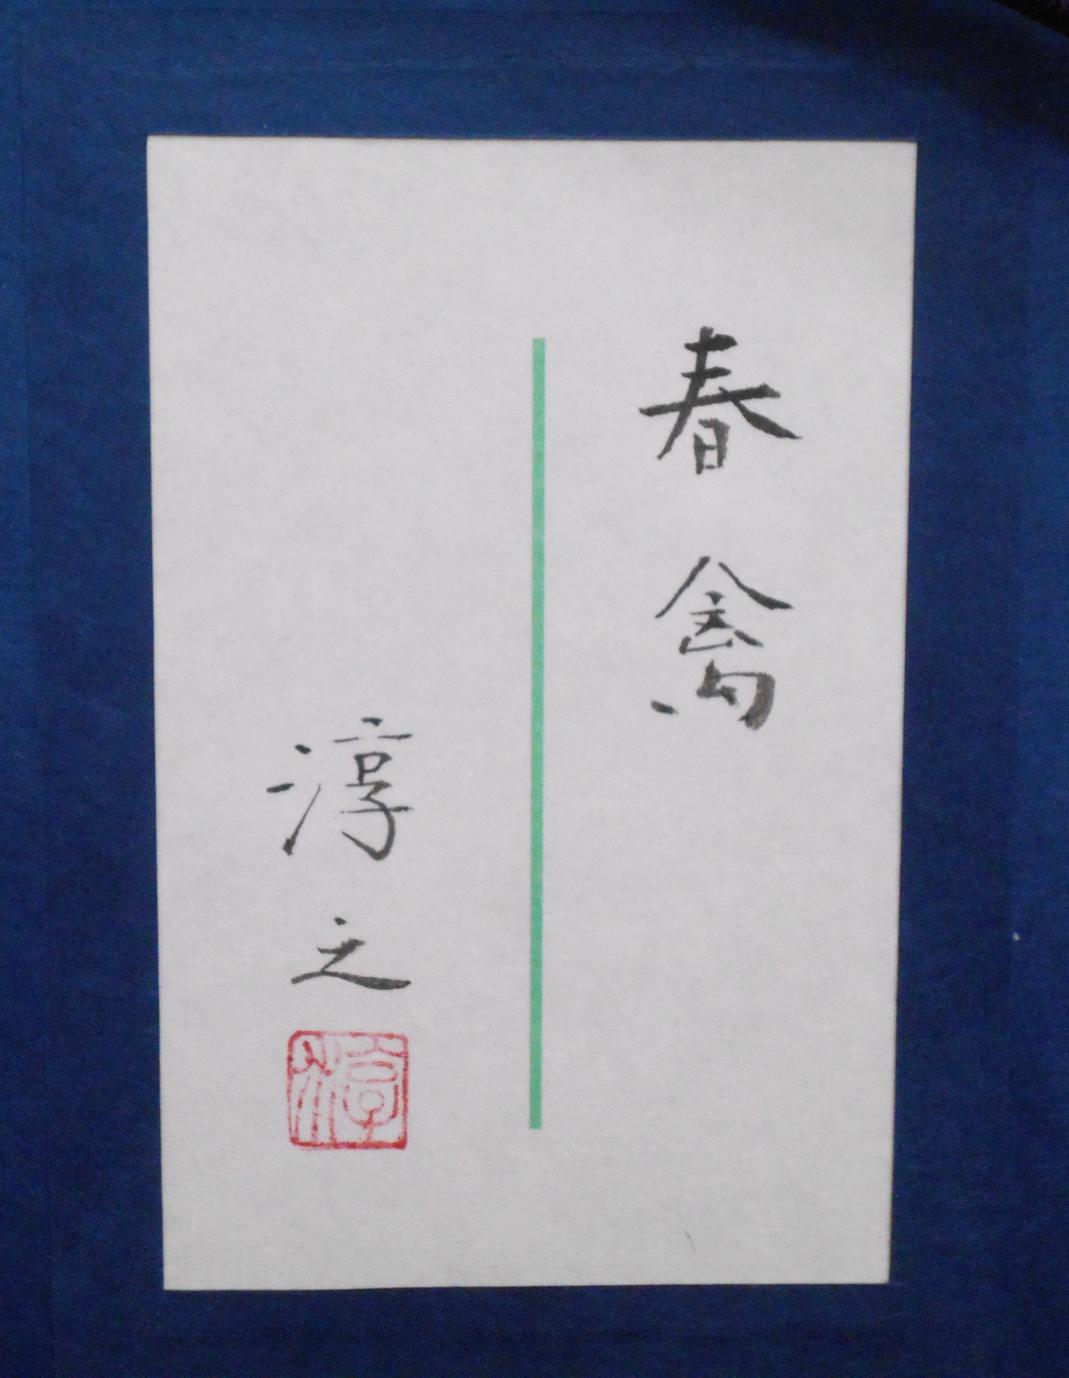 春禽
淳之
淳